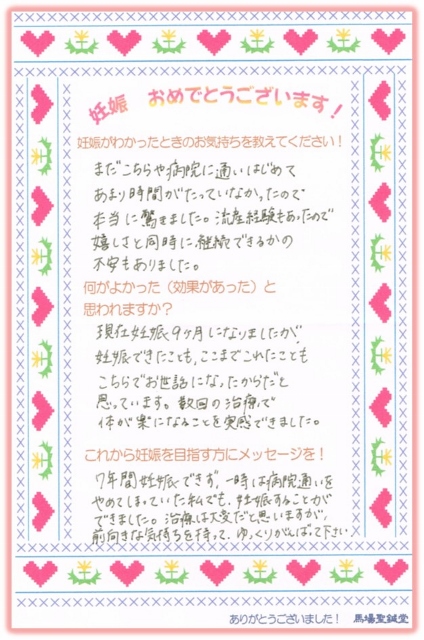 妊娠 おめでとうございます!
妊娠がわかったときのお気持ちを教えてください!
まだこちらや病院に通いはじめて
あまり時間がたっていなかったので
本当に驚きました。流産経験もあったので
嬉しさと同時に継続できるかの
不安もありました。
何がよかった(効果があった)と
思われますか?
現在妊娠9ヶ月になりましたが、
妊娠できたことも、ここまでこれたことも
こちらでお世話になったからだと
思っています。数回の治療で
体が楽になることを実感できました。
これから妊娠を目指す方にメッセージを!
7年間妊娠できず、一時は病院通いを
やめてしまっていた私でも、妊娠することが
できました。治療は大変だと思いますが、
前向きな気持ちを持って、ゆっくりがんばって下さい
ありがとうございました! 馬場聖鍼堂